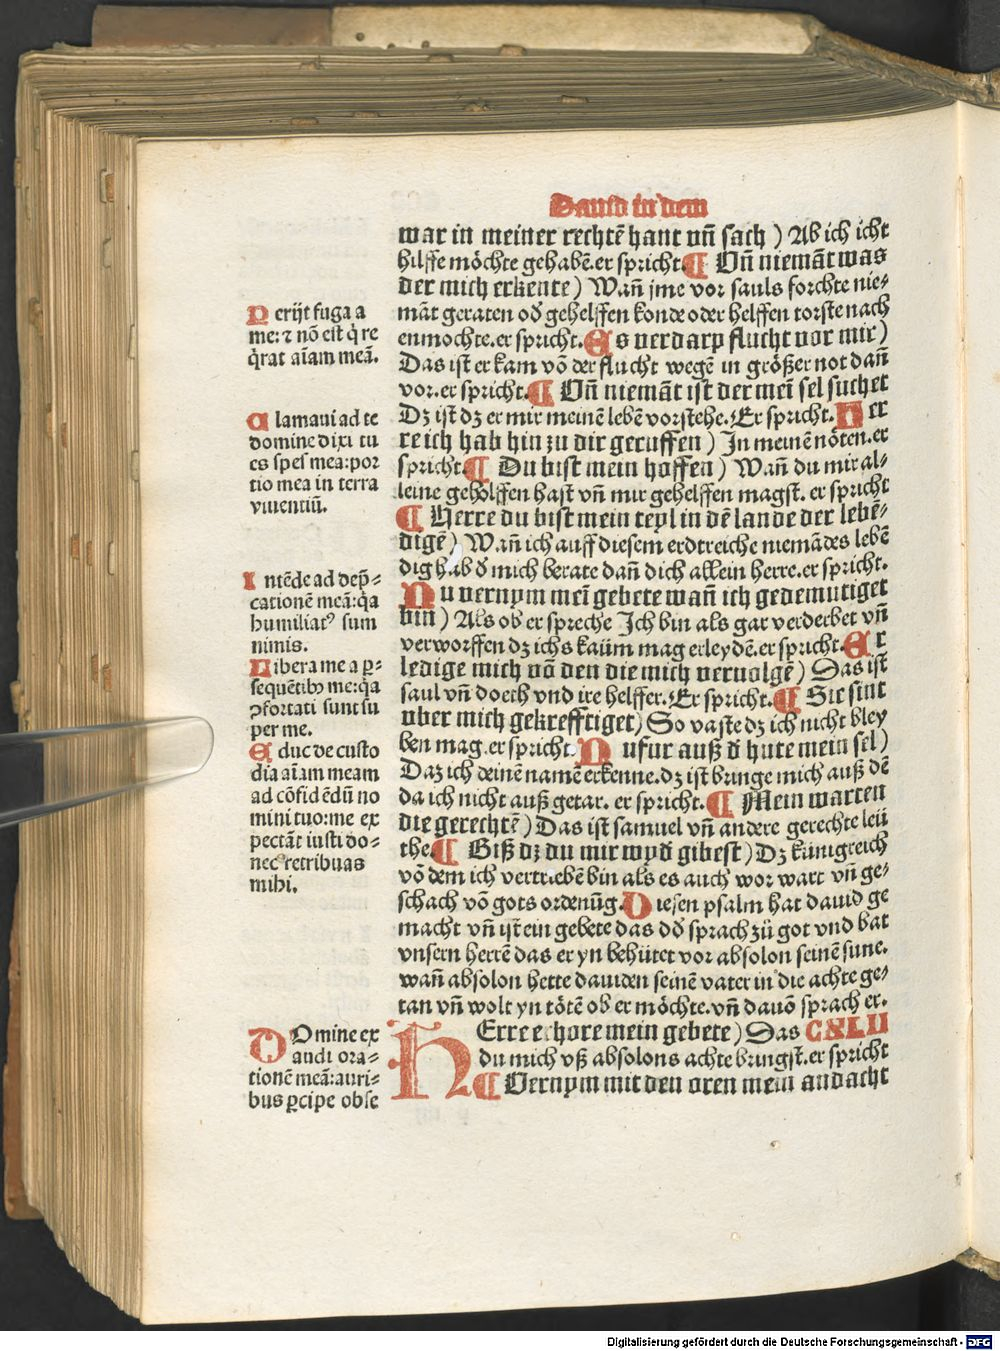 Dauid in dem
war in meiner rechtē hant vñ sach) Ab ich icht
hilffe möchte gehabē.er spricht.¶ Vñ niemāt was
der mich erkente) Wañ jme vor sauls forchte nie⸗
māt geraten oð gehelffen konde oder helffen torste nach
enmochte.er spricht.Es verdarp flucht vor mir)
Das ist er kam vō der flucht wegē in größer not dañ
vor.er spricht.¶ Vñ niemāt ist der mei sel suchet
Dz ist dz er mir meinē lebē vorstehe.Er spricht.Her
re ich hab hin zu dir geruffen) In meinē nöten.er
spricht.¶ Du bist mein hoffen) Wañ du mir al⸗
leine geholffen hast vñ mir gehelffen magst. er spricht
¶ Herre du bist mein teyl in dē lande der lebē⸗
digē) Wañ ich auff diesem erdtreiche niemādes lebē
dig hab ð mich berate dañ dich allein herre.er spricht.
Nu vernym mei gebete wañ ich gedemutiget
bin) Als ob er spreche Ich bin als gar verderbet vñ
verworffen dz ichs kaüm mag erleydē.er spricht.Er
ledige mich vō den die mich vervolgē) Das ist
saul vñ doech vnd ire helffer.Er spricht.¶ Sie sint
vber mich gekrefftiget) So vaste dz ich nicht bley
ben mag.er spricht.Nu fur auß ð hute mein sel)
Daz ich deinē namē erkenne.dz ist bringe mich auß dē
da ich nicht auß getar. er spricht.¶ Mein warten
die gerechtē) Das ist samuel vñ andere gerechte leü
the.¶ Biß dz du mir wyð gibest) Dz künigreich
vō dem ich vertriebē bin als es auch wor wart vñ ge⸗
schach vō gots ordenūg.Diesen psalm hat dauid ge
macht vñ ist ein gebete das dð sprach zü got vnd bat
vnsern herrē das er yn behütet vor absolon seinē sune.
wañ absolon hette dauiden seinē vater in die achte ge⸗
tan vñ wolt yn tötē ob er möchte.vñ dauō sprach er.
HErre erhore mein gebete) Das CXLII
du mich vß absolons achte bringst.er spricht
¶ Vernym mit den oren mein andacht
Perijt fuga a
me:⁊ nō est q̇ re
q̇rat aīam meā.
Clamaui ad te
domine dixi tu
es spes mea:por
tio mea in terra
viuentiū.
Intēde ad dep̄⸗
cationē meā:q̇a
humiliatꝰ sum
nimis.
Libera me a ꝑ⸗
sequētibꝫ me:q̇a
ꝯfortati sunt su
per me.
Educ de custo
dia aīam meam
ad cōfidēdū no
mini tuo:me ex
pectāt iusti do⸗
nec retribuas
mihi.
DOmine ex
audi ora⸗
tionē meā:auri⸗
bus ꝑcipe obse
Digitalisierung gefördert durch die Deutsche Forschungsgemeinschaft - DFG